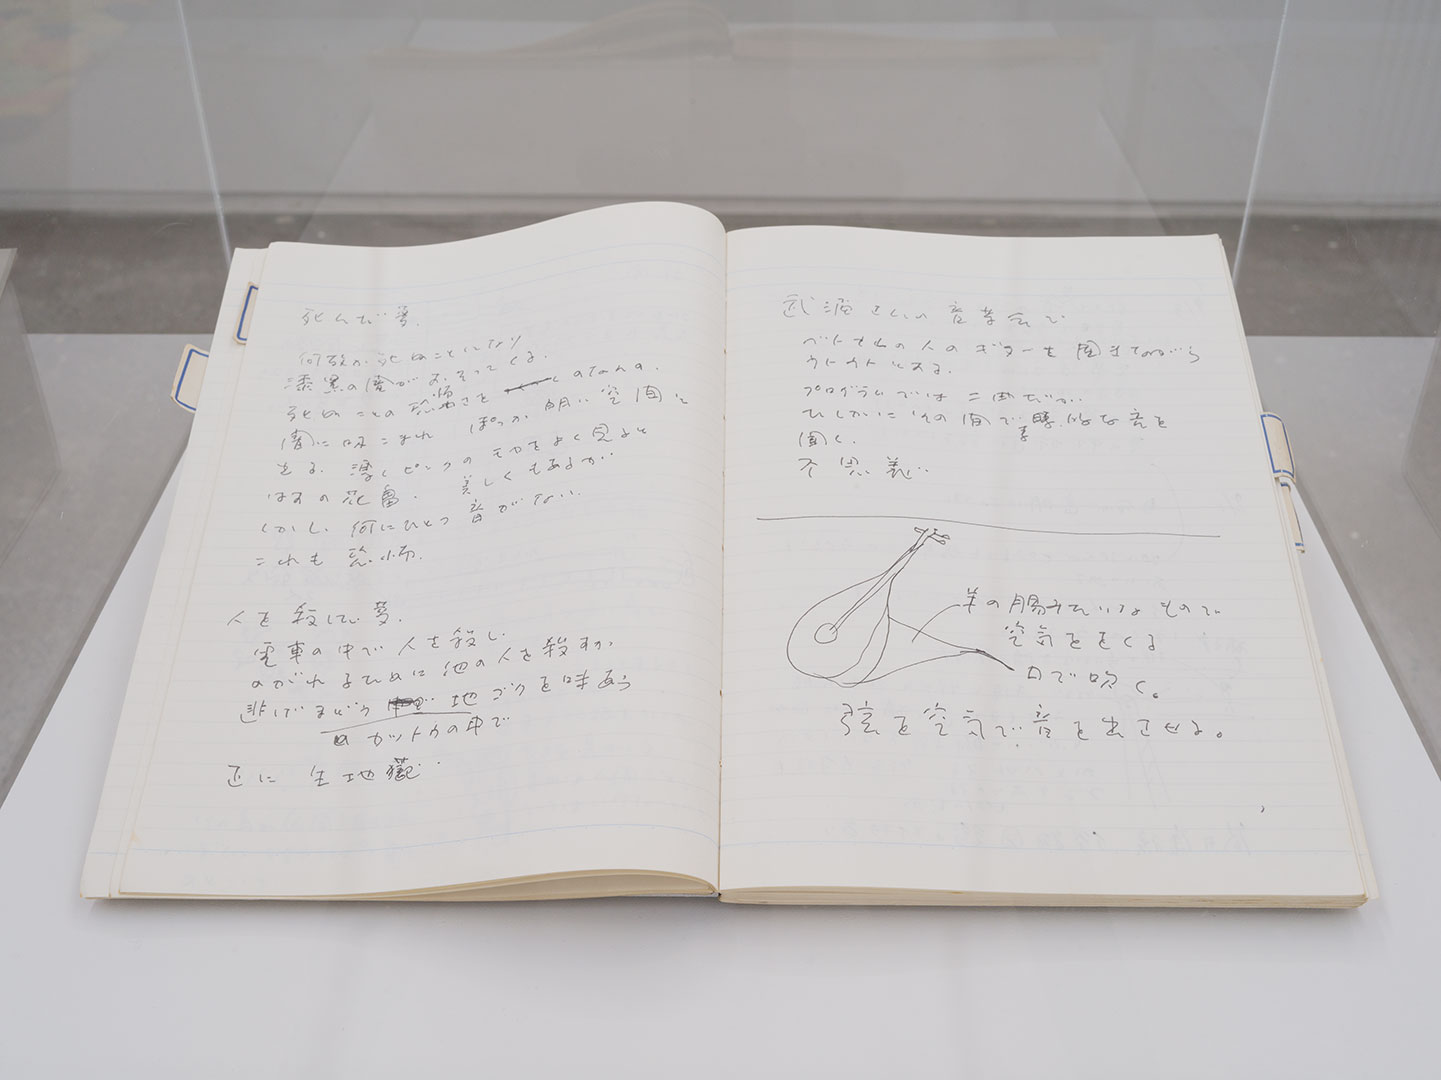 死んだ夢.
何故か死ぬことになり
漆黒の闇がおそってくる.
死ぬことの恐怖さと
闇に吸こまれ ぽっか 明い空間に
出る. 薄いピンクのモヤをよく見ると
はすの花畠. 美しくもあるが
しかし 何にひとつ音がない.
これも恐怖.
人を殺した夢.
電車の中で人を殺し
のがれるために他の人を殺すか
逃げまどう 地ごくを味あう
カットウの中で
正に 生地獄
武満さんの音楽会で
ベトナムの人のギターを聞きながら
ウトウトとする.
プログラムでは二曲だが
ひしかにその間で 的な音を
聞く.
不思義
羊の腸みたいなもので
空気ををくる
口で吹く。
弦を空気で音を出させる。